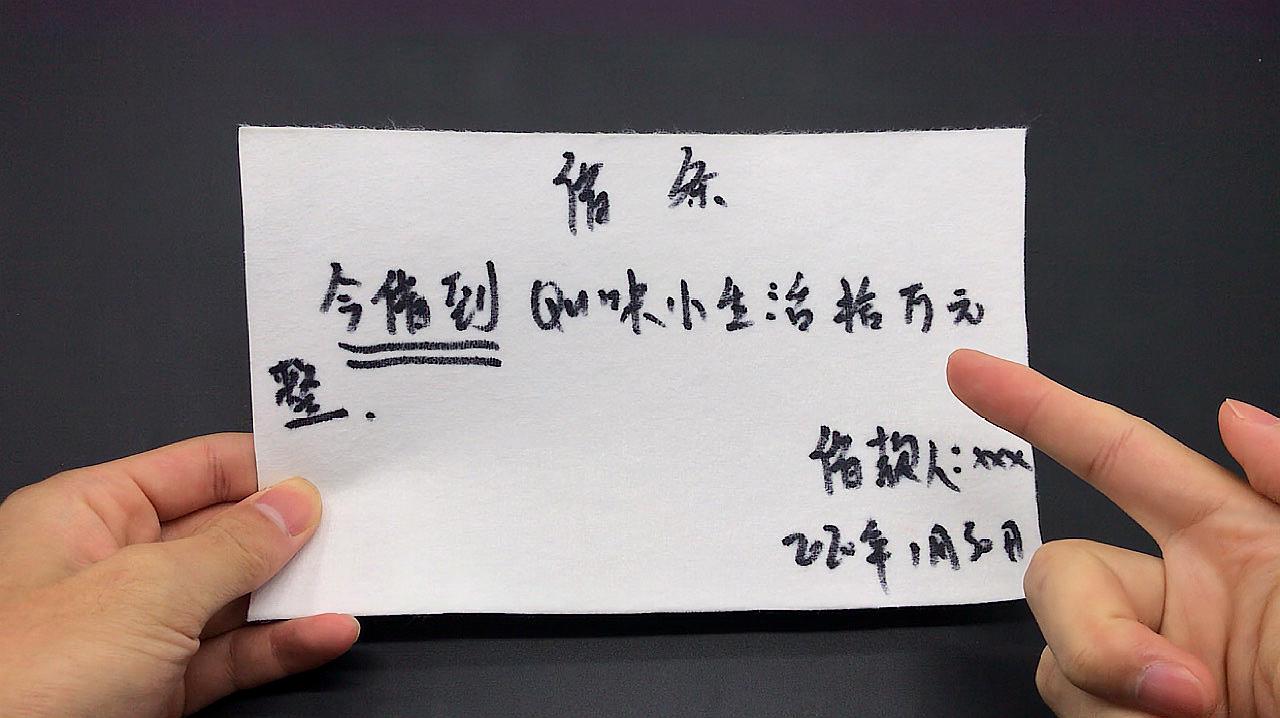 借条
今借到Qu味小生活拾万元
整.
借款人:xxx
2020年1月30日